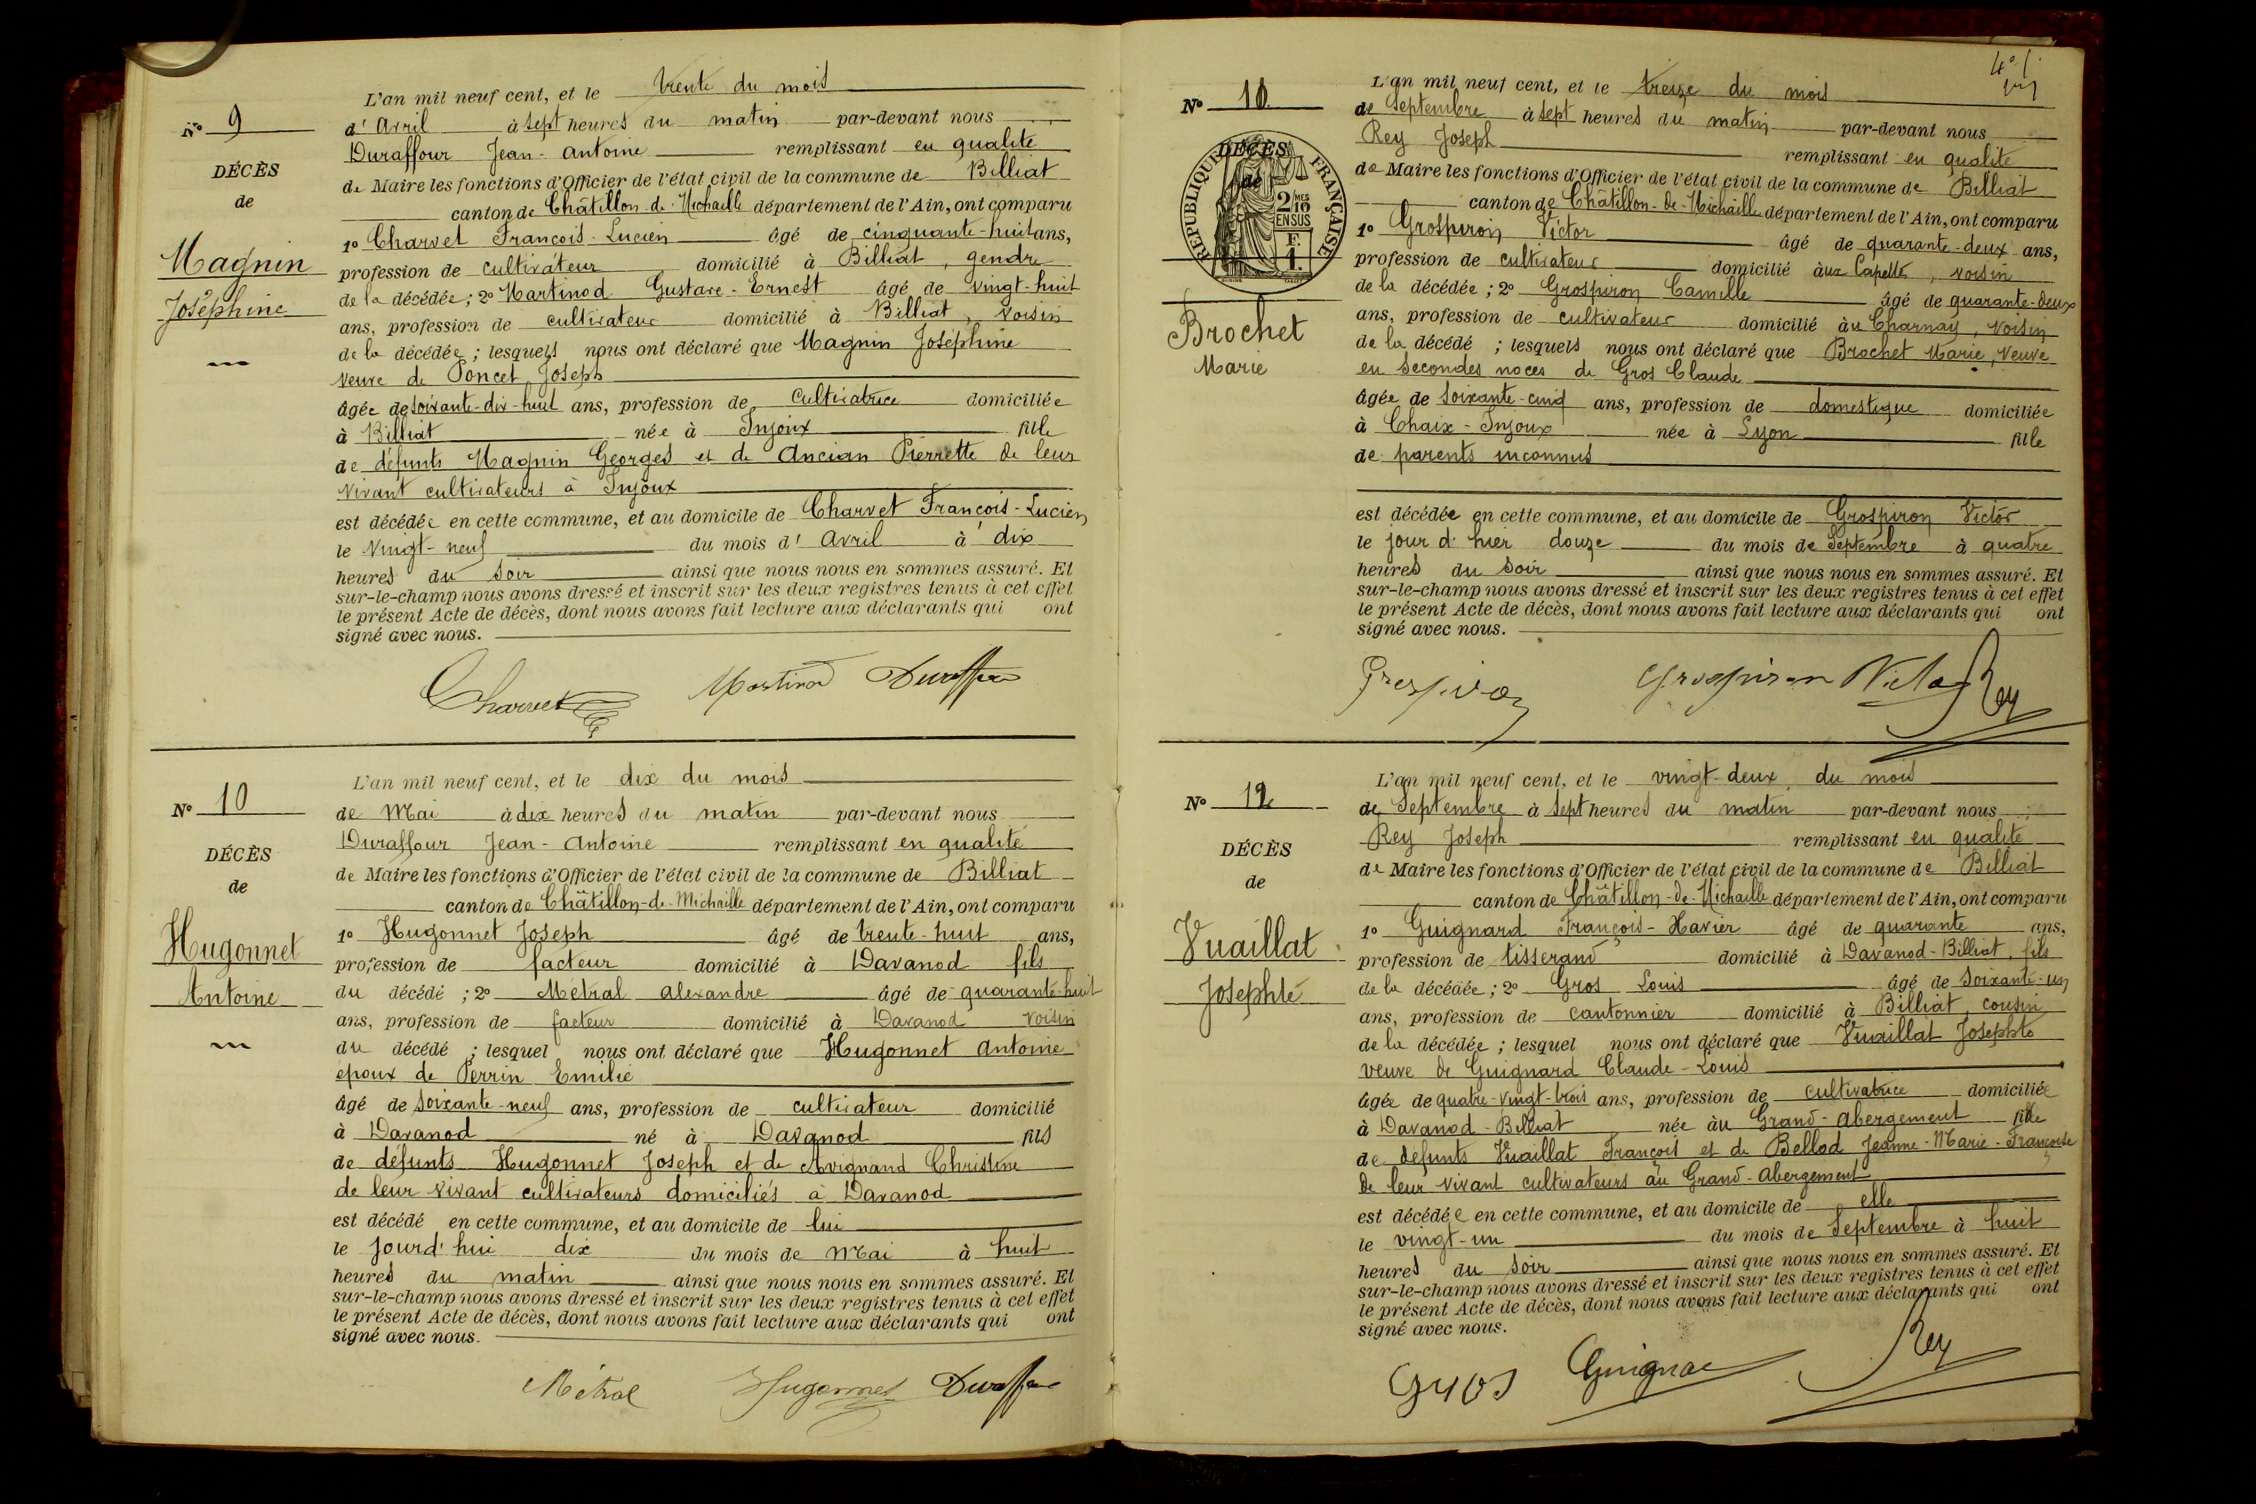 N° 9
DÉCÈS
de
Magnin
Joséphine
L'an mil neuf cent, et le trente du mois
d'Avril à sept heures du matin par-devant nous
Duraffour Jean-Antoine remplissant en qualité
de Maire les fonctions d'Officier de l'état civil de la commune de Billiat
canton de Châtillon-de-Michaille département de l'Ain, ont comparu
1° Charvet François-Lucien âgé de cinquante-huit ans,
profession de cultivateur domicilié à Billiat, gendre
de la décédée ; 2° Martinod Gustave-Ernest âgé de vingt-huit
ans, profession de cultivateur domicilié à Billiat, voisin
de la décédée ; lesquels nous ont déclaré que Magnin Joséphine
veuve de Poncet Joseph
âgée de soixante-dix-huit ans, profession de cultivatrice domiciliée
à Billiat née à Injoux fille
de défunts Magnin Georges et de Ancian Pierrette de leur
vivant cultivateurs à Injoux
est décédée en cette commune, et au domicile de Charvet François-Lucien
le vingt-neuf du mois d'Avril à dix
heures du soir ainsi que nous nous en sommes assuré. Et
sur-le-champ nous avons dressé et inscrit sur les deux registres tenus à cet effet
le présent Acte de décès, dont nous avons fait lecture aux déclarants qui ont
signé avec nous.
Charvet Martinod Duraffour
N° 10
DÉCÈS
de
Hugonnet
Antoine
L'an mil neuf cent, et le dix du mois
de Mai à dix heures du matin par-devant nous
Duraffour Jean-Antoine remplissant en qualité
de Maire les fonctions d'Officier de l'état civil de la commune de Billiat
canton de Châtillon-de-Michaille département de l'Ain, ont comparu
1° Hugonnet Joseph âgé de trente-huit ans,
profession de facteur domicilié à Davanod fils
du décédé ; 2° Metral Alexandre âgé de quarante-huit
ans, profession de facteur domicilié à Davanod voisin
du décédé ; lesquel nous ont déclaré que Hugonnet Antoine
epoux de Perrin Emilie
âgé de soixante-neuf ans, profession de cultivateur domicilié
à Davanod né à Davanod fils
de défunts Hugonnet Joseph et de Avignand Christine
de leur vivant cultivateurs domiciliés à Davanod
est décédé en cette commune, et au domicile de lui
le jourd'hui dix du mois de Mai à huit
heures du matin ainsi que nous nous en sommes assuré. Et
sur-le-champ nous avons dressé et inscrit sur les deux registres tenus à cet effet
le présent Acte de décès, dont nous avons fait lecture aux déclarants qui ont
signé avec nous.
Métral Hugonnet Duraffour
N° 11
DÉCÈS
de
RÉPUBLIQUE FRANÇAISE
2/10 MES
EN SUS
F.
1.
Brochet
Marie
L'an mil neuf cent, et le treize du mois
de Septembre à sept heures du matin par-devant nous
Rey Joseph remplissant en qualité
de Maire les fonctions d'Officier de l'état civil de la commune de Billiat
canton de Châtillon-de-Michaille département de l'Ain, ont comparu
1° Grospiron Victor âgé de quarante-deux ans,
profession de cultivateur domicilié aux Capette, voisin
de la décédée ; 2° Grospiron Camille âgé de quarante-deux
ans, profession de cultivateur domicilié au Charnay, voisin
de la décédé ; lesquels nous ont déclaré que Brochet Marie, veuve
en secondes noces de Gros Claude
âgée de soixante-cinq ans, profession de domestique domiciliée
à Chaix-Injoux née à Lyon fille
de parents inconnus
est décédée en cette commune, et au domicile de Grospiron Victor
le jour d'hier douze du mois de Septembre à quatre
heures du soir ainsi que nous nous en sommes assuré. Et
sur-le-champ nous avons dressé et inscrit sur les deux registres tenus à cet effet
le présent Acte de décès, dont nous avons fait lecture aux déclarants qui ont
signé avec nous.
Grospiron Grospiron Victor Rey
N° 12
DÉCÈS
de
Vuaillat
Josephte
L'an mil neuf cent, et le vingt-deux du mois
de Septembre à sept heures du matin par-devant nous
Rey Joseph remplissant en qualité
de Maire les fonctions d'Officier de l'état civil de la commune de Billiat
canton de Châtillon-de-Michaille département de l'Ain, ont comparu
1° Guignard François-Xavier âgé de quarante ans,
profession de tisserand domicilié à Davanod-Billiat, fils
de la décédée ; 2° Gros Louis âgé de soixante-un
ans, profession de cantonnier domicilié à Billiat, cousin
de la décédée ; lesquel nous ont déclaré que Vuaillat Josephte
veuve de Guignard Claude-Louis
âgée de quatre-vingt-trois ans, profession de cultivatrice domiciliée
à Davanod-Billiat née au Grand-Abergement fille
de defunts Vuaillat François et de Ballad Jeanne-Marie-Françoise
de leur vivant cultivateurs au Grand-Abergement
est décédée en cette commune, et au domicile de elle
le vingt-un du mois de Septembre à huit
heures du soir ainsi que nous nous en sommes assuré. Et
sur-le-champ nous avons dressé et inscrit sur les deux registres tenus à cet effet
le présent Acte de décès, dont nous avons fait lecture aux déclarants qui ont
signé avec nous.
Gros Guignard Rey